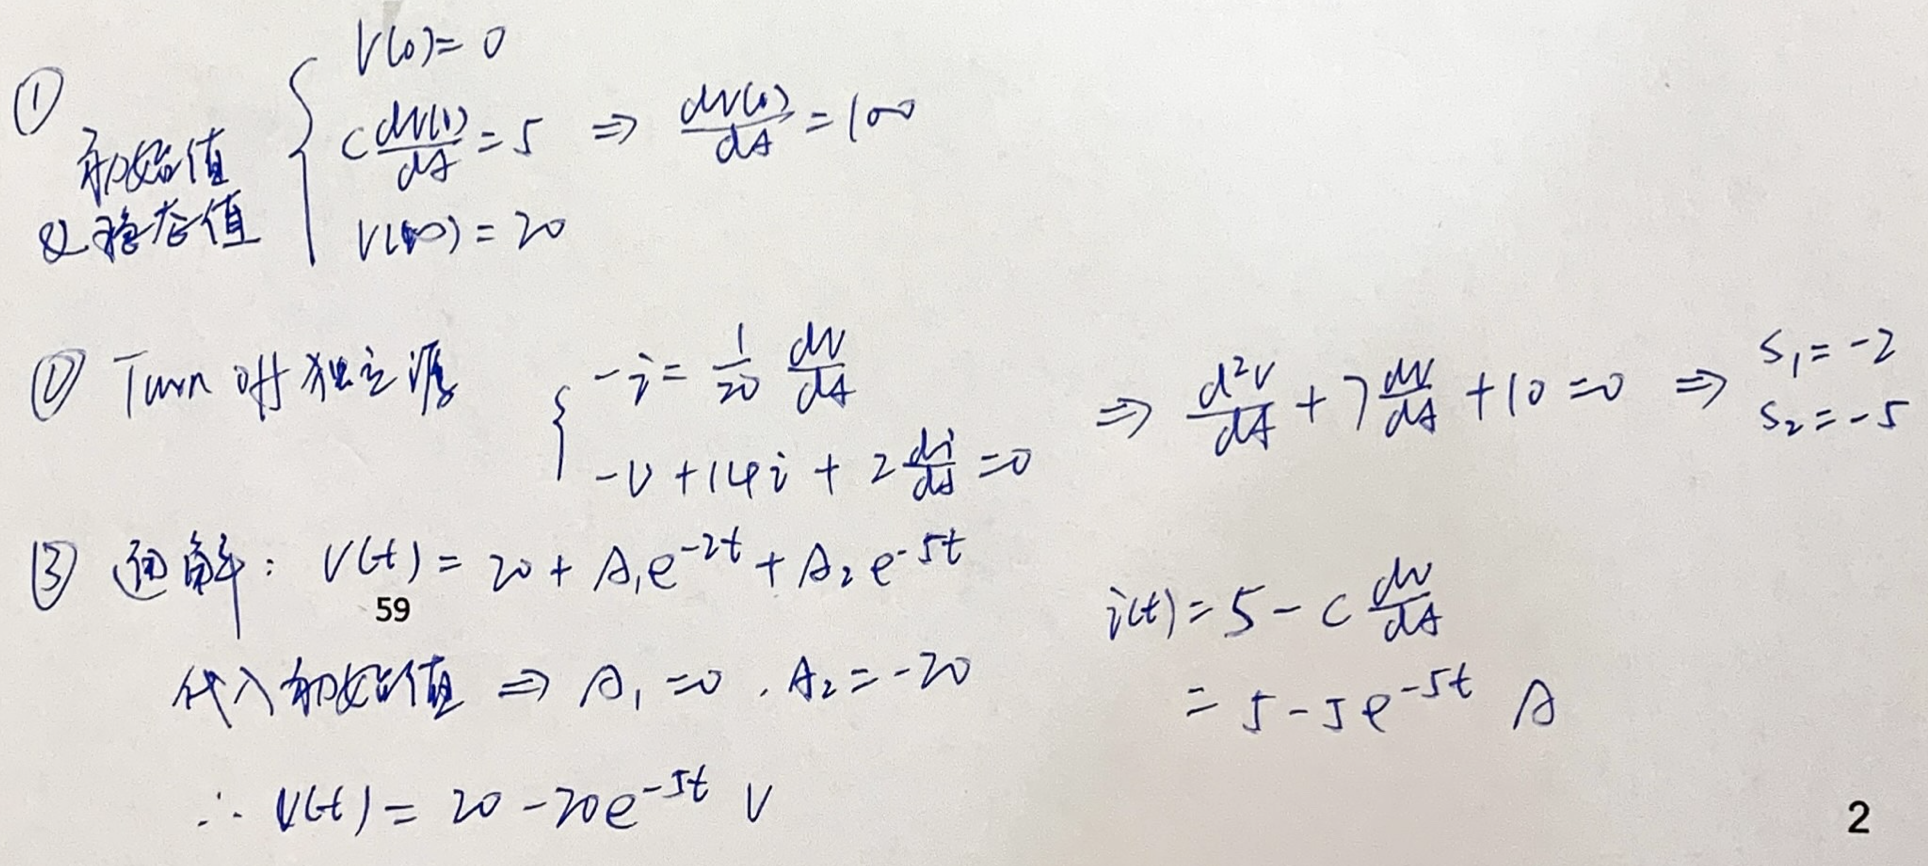 ① 初始值
及稳态值
V(0)=0
C dV(0)/dt = 5 ⇒ dV(0)/dt = 100
V(∞) = 20
② Turn off 独立源
-i = 1/20 dV/dt
-V + 14i + 2 di/dt = 0
⇒ d²V/dt + 7 dV/dt + 10 = 0 ⇒ S₁ = -2
S₂ = -5
③ 通解: V(t) = 20 + A₁e^{-2t} + A₂e^{-5t}
59
代入初始值 ⇒ A₁ = 0 . A₂ = -20
∴ V(t) = 20 - 20e^{-5t} V
i(t) = 5 - C dV/dt
= 5 - 5e^{-5t} A
2